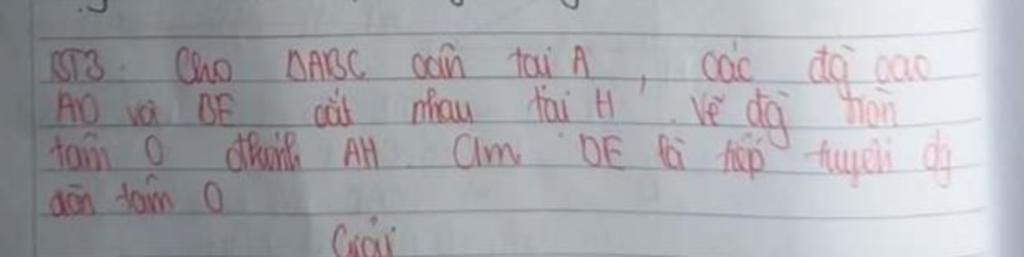 BT3. Cho ΔABC cân tại A, các đg cao
AD và BE cắt nhau tại H. Vẽ đg tròn
tâm O đkính AH. Cm DE là tiếp tuyến đg
tròn tâm O
Giải